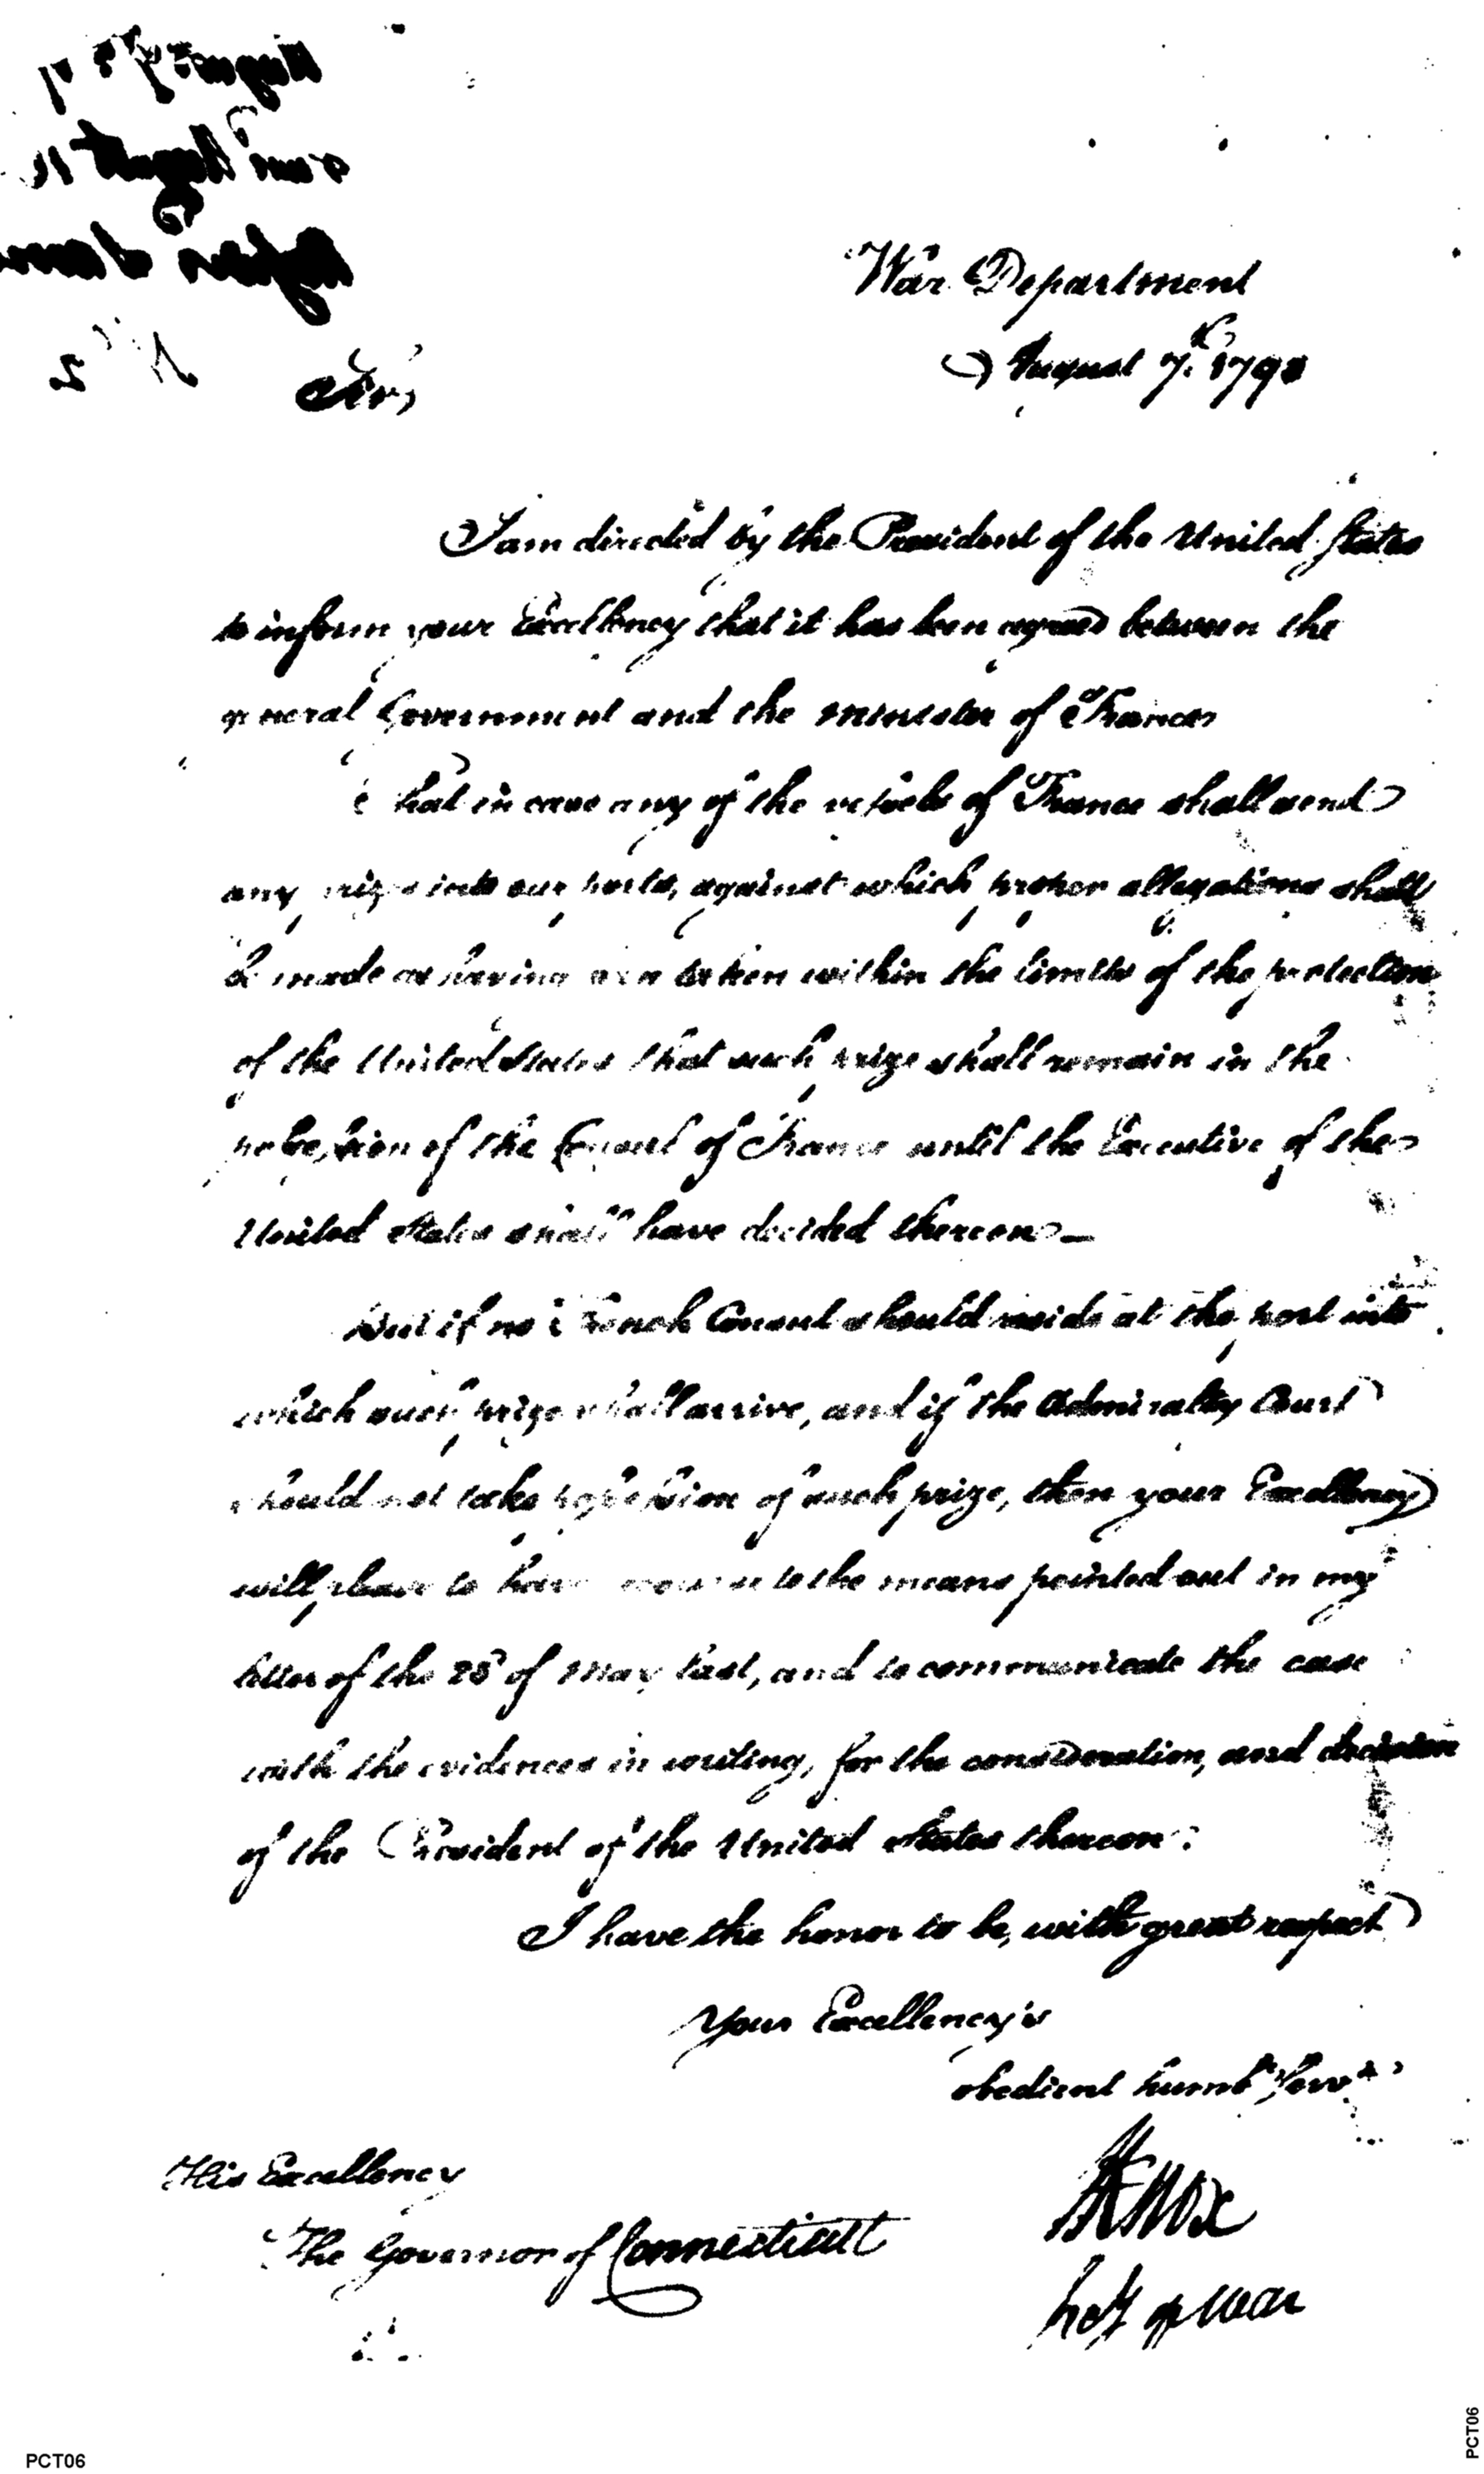 War Department
August 7th. 1793
Sir,
I am directed by the President of the United States
to inform your Excellency that it has been agreed between the
general Government and the minister of France
that in case any of the vessels of France shall send
any prize into our ports, against which proper allegations shall
be made as having been taken within the limits of the protection
of the United States that such prize shall remain in the
possession of the Consul of France until the Executive of the
United States shall have decided thereon —
But if no French Consul should reside at the port into
which such prize shall arrive, and if the Admiralty Court
should not take possession of such prize, then your Excellency
will please to have recourse to the means pointed out in my
letter of the of May last, and to communicate the case
with the evidences in writing, for the consideration, and decision
of the President of the United States thereon.
I have the honor to be, with great respect
Your Excellency's
obedient humb Serv
His Excellency
HKnox
The Governor of Connecticutt
of War
PCT06
PCT06